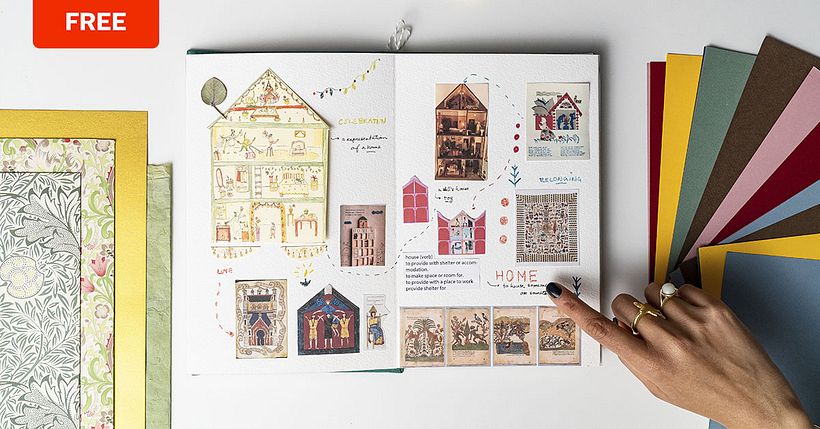 FREE
CELEBRATION
a representation
of a house
a doll's house
toy
BELONGING
house (verb)
to provide with shelter or accom-
modation.
to make space or room for.
to provide with a place to work
provide shelter for
HOME
to house someone
or